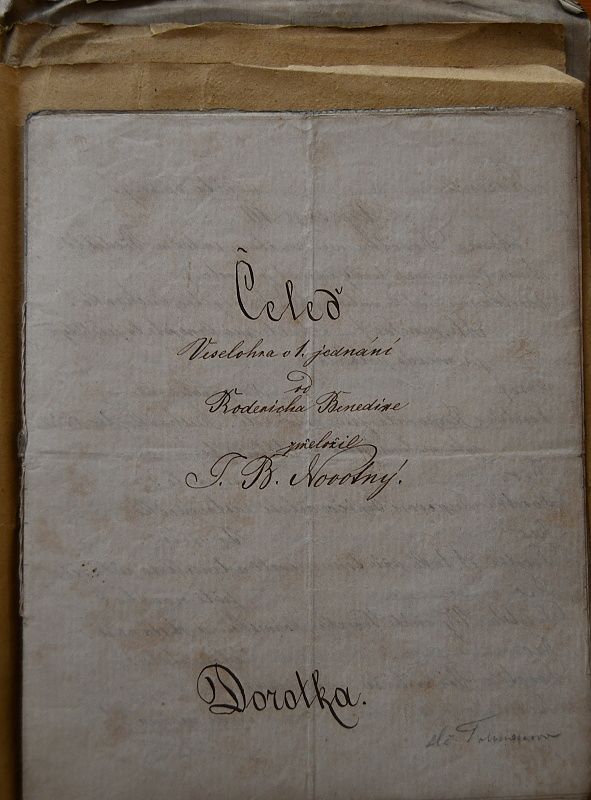 Čeleď
Veselohra o 1. jednání
od
Rodericha Benedixe
přeložil
J. B. Novotný.
Dorotka.